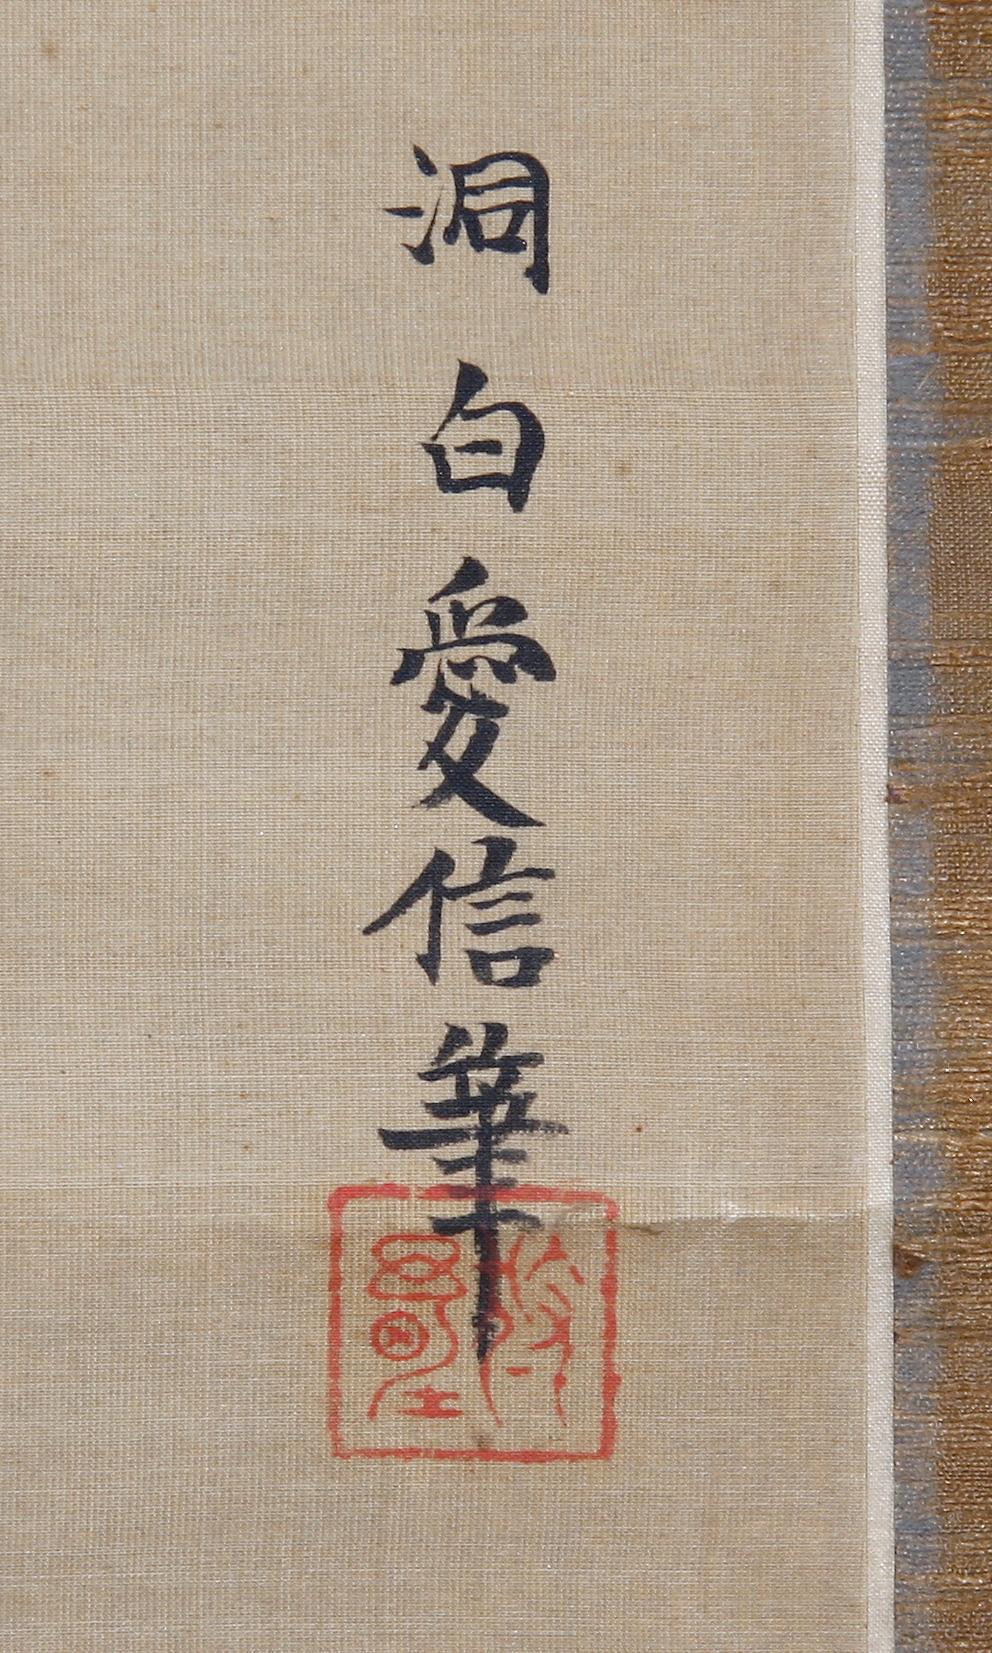 洞白愛信筆